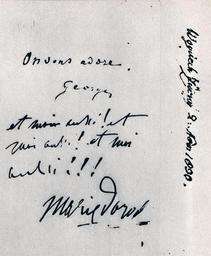 On vous adore.
George
et moi aussi! et
moi aussi! et moi
aussi!!!
Marie Dorval
2. Nov. 1830.